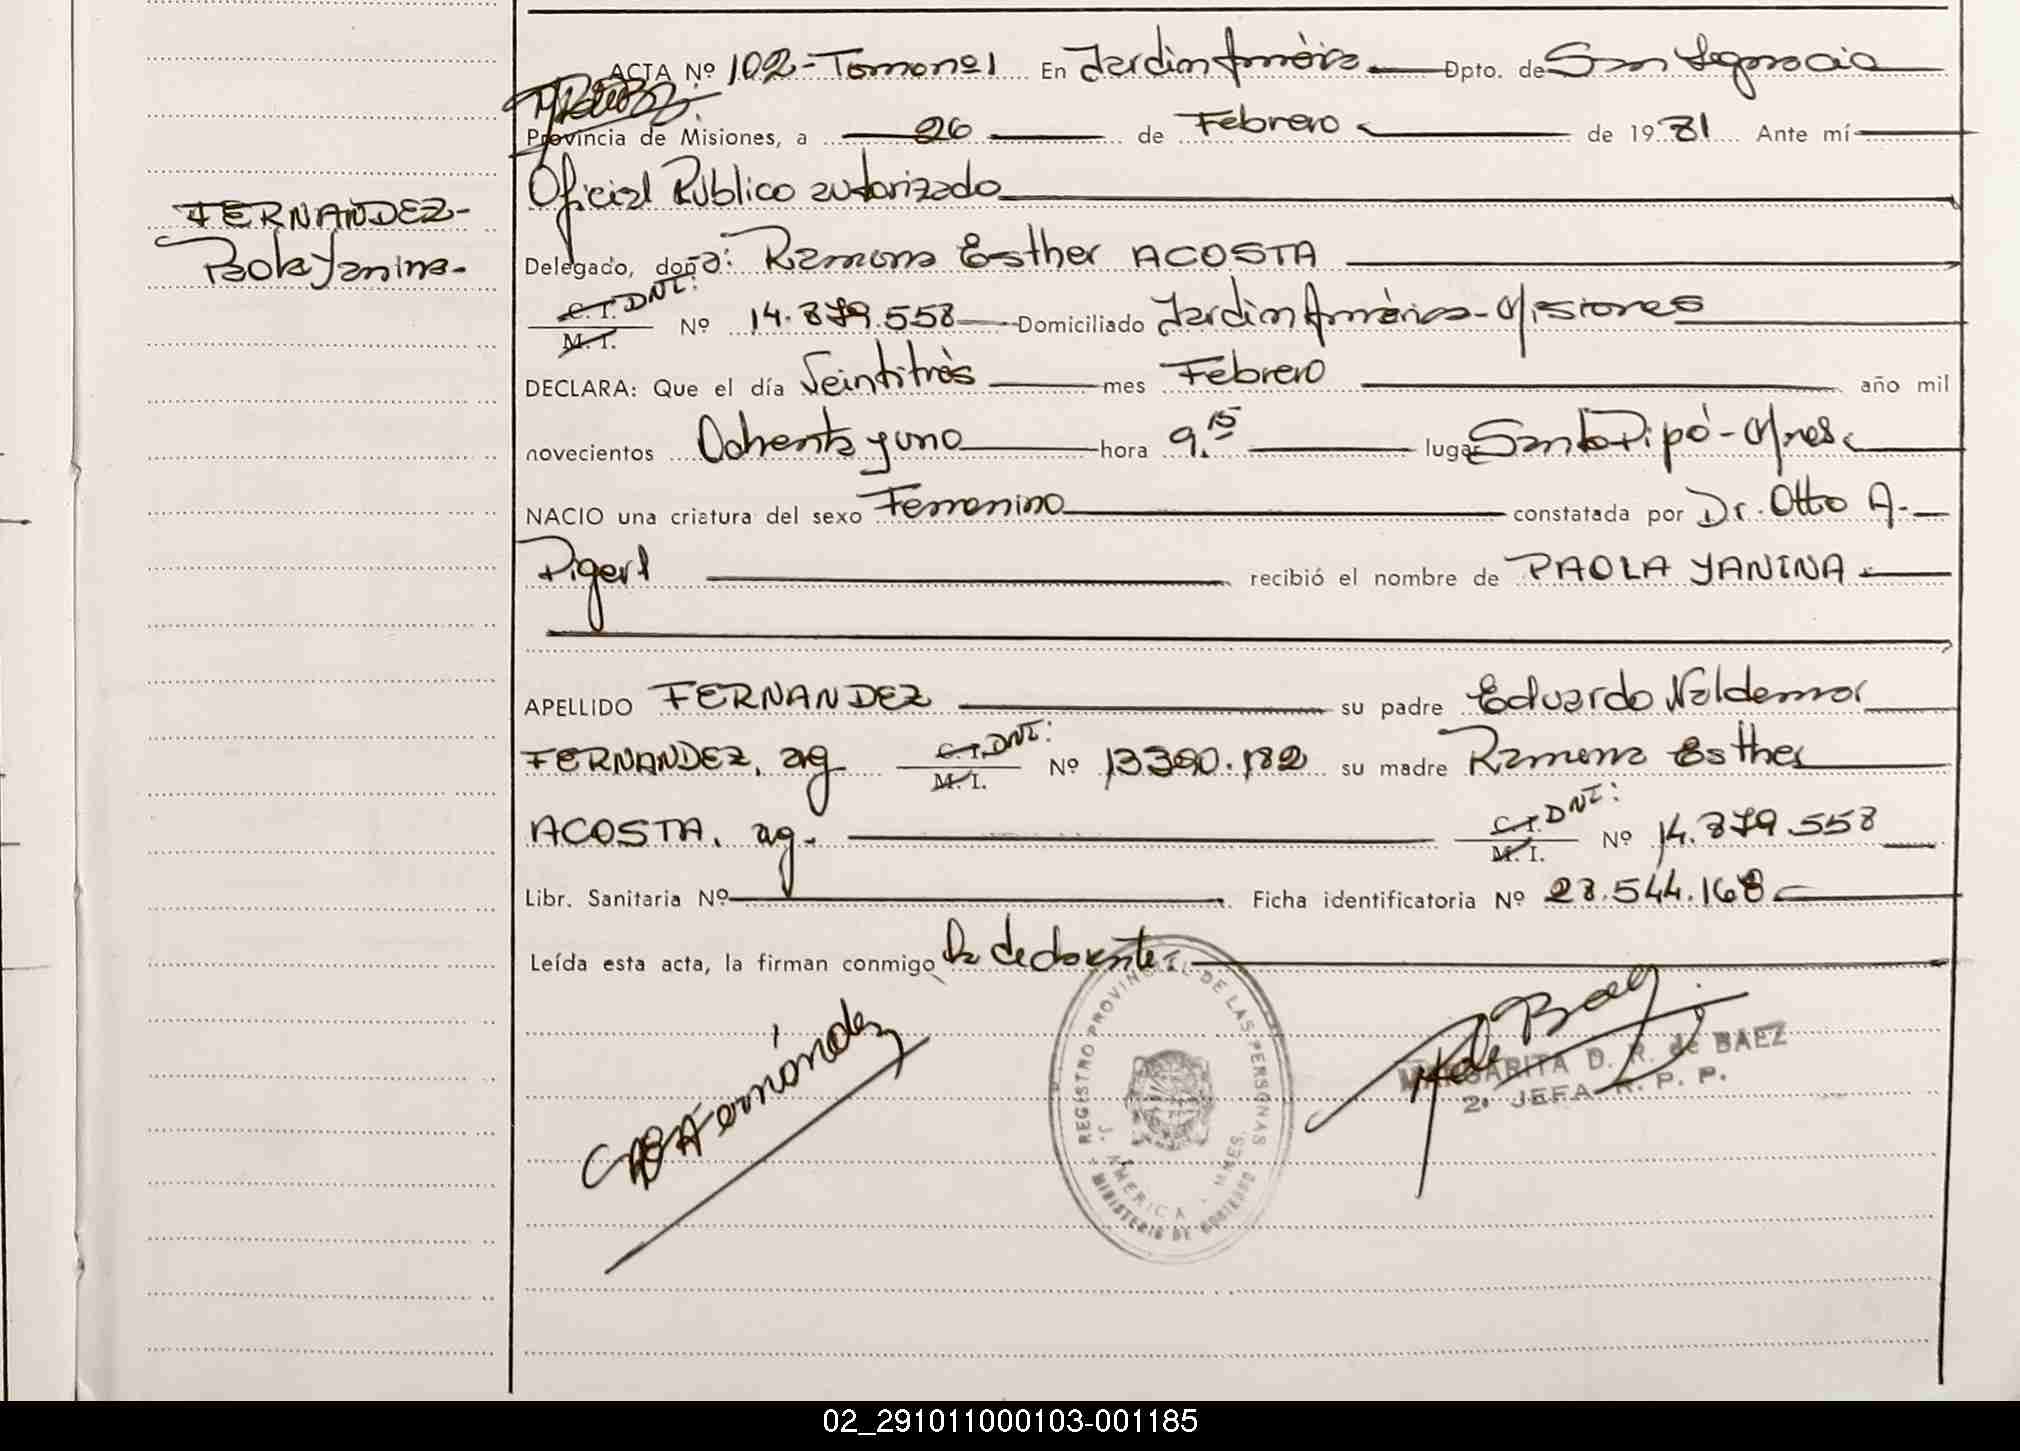 ACTA Nº 102-Tomo nº1 En Jardín América Dpto. de San Ignacio
Provincia de Misiones, a 26 de Febrero de 1981 Ante mí
Oficial Público autorizado
FERNANDEZ-
Paola Yanina.
Delegado, doña: Ramona Esther ACOSTA
C.I. DNI:
M.I. Nº 14.879.558 Domiciliado Jardín América-Misiones
DECLARA: Que el día Veintitrés mes Febrero año mil
novecientos Ochenta y uno hora 9.15 lugar Santo Pipó-Mnes.
NACIO una criatura del sexo Femenino constatada por Dr. Otto A.
Pigerl recibió el nombre de PAOLA YANINA
APELLIDO FERNANDEZ su padre Eduardo Valdemar
FERNANDEZ, ag C.I. DNI: M.I. Nº 13390.182 su madre Ramona Esther
ACOSTA, ag. C.I. DNI: M.I. Nº 14.879.558
Libr. Sanitaria Nº Ficha identificatoria Nº 28.544.168
Leída esta acta, la firman conmigo la declarante
REGISTRO PROVINCIAL DE LAS PERSONAS
J. AMERICA - MNES.
MINISTERIO DE GOBIERNO
MARGARITA D. R. de BAEZ
2ª JEFA R. P. P.
02_291011000103-001185